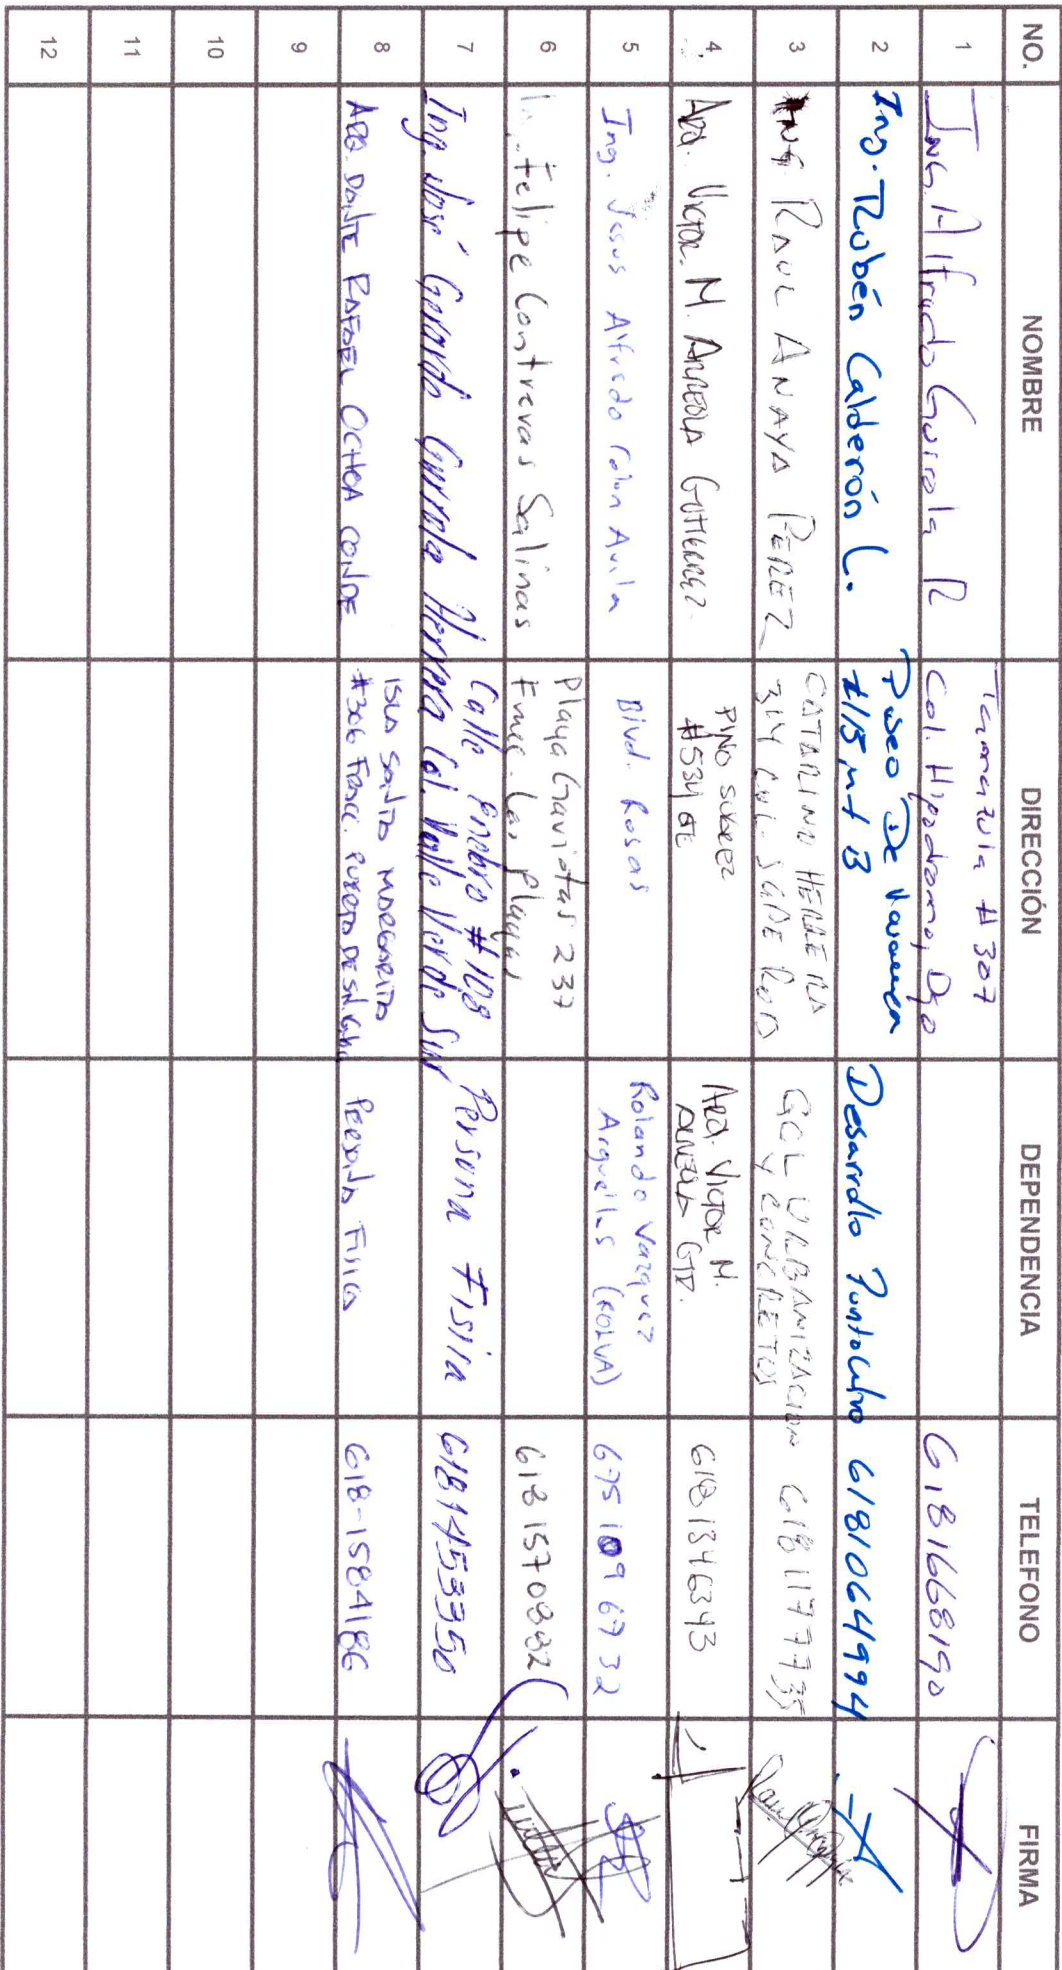 NO. NOMBRE DIRECCIÓN DEPENDENCIA TELEFONO FIRMA
1 Ing. Alfredo Guirola R Tamazula #307
Col. Hipodromo, Dgo 6181668190
2 Ing. Rubén Calderón L. Paseo De
#115 Desarrollo 6181064994
3 ING. RAUL ANAYA PEREZ CATARINO HERRERA
314 COL. GCL URBANIZACION
Y CONCRETOS 618 117 7735
4 ARQ. VICTOR. M. ARREOLA GUTIERREZ PINO SUAREZ
#534 OTE ARQ. VICTOR M.
ARREOLA GTZ. 618 134 6343
5 Ing. Jesus Alfredo Colon Avila Blvd. Rosas Rolando Vazquez
Arguelles (ROLVA) 675 109 67 32
6 Felipe Contreras Salinas Playa Gaviotas 237
Fracc. Las playas 618 1570882
7 Ing. José Gerardo Gurrola Herrera Calle Enebro #108
Col. Valle Verde Sur Persona Fisica 6181453350
8 ARQ. DANTE RAFAEL OCHOA CONDE ISLA SANTA MARGARITA
#306 FRACC. PUERTO DE SN. Persona Fisica 618-1584186
9
10
11
12